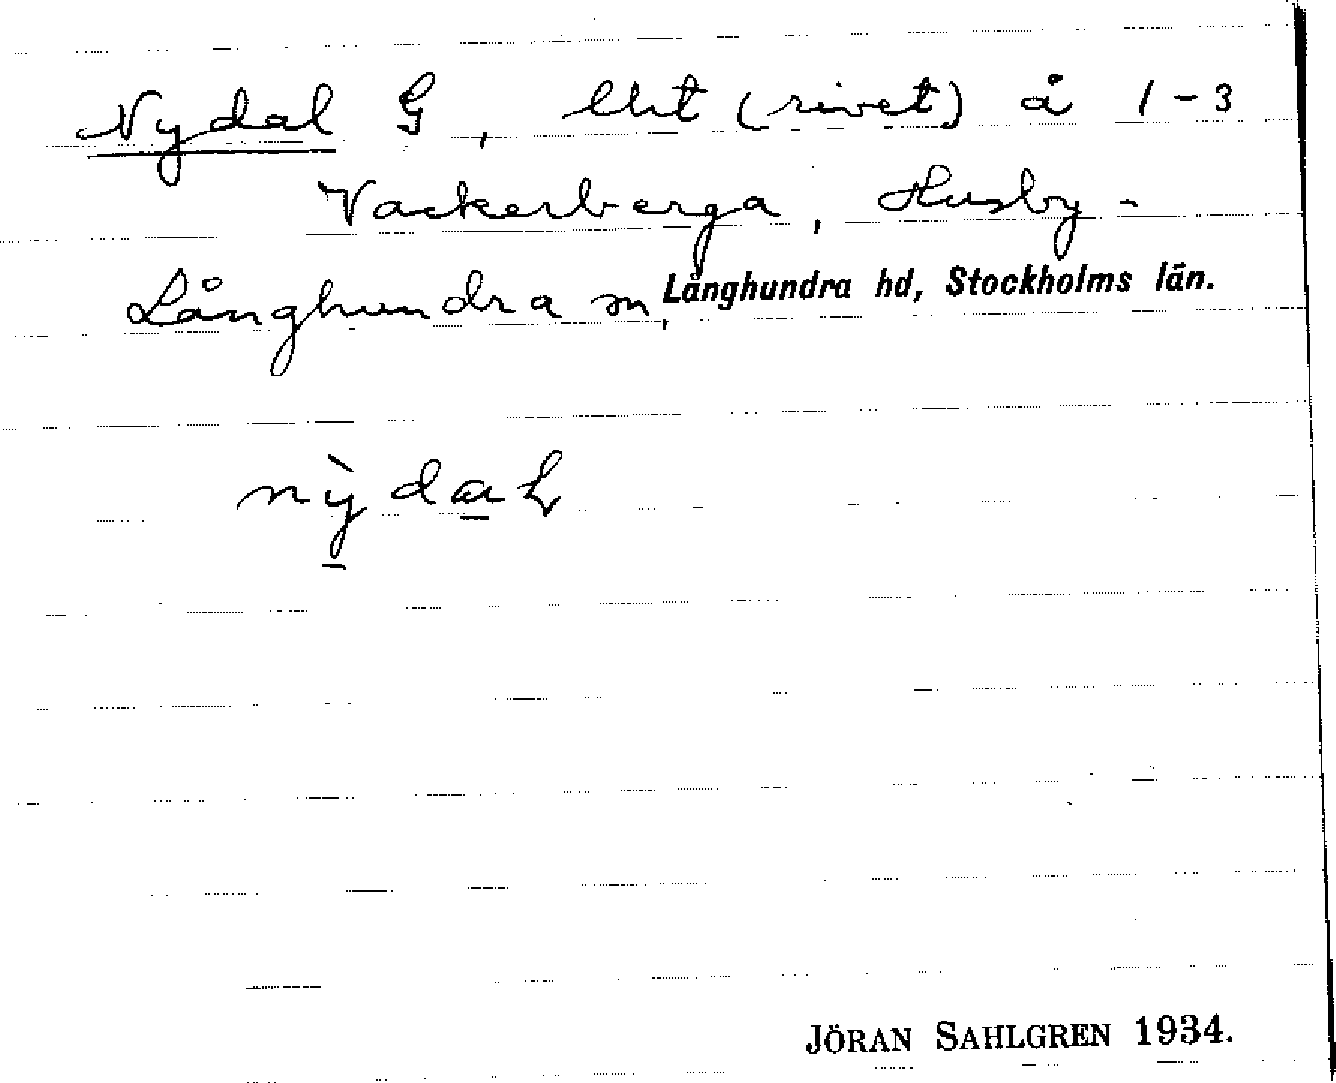 Nydal G, lht (rivet) å 1-3
Vackerberga, Husby-
Långhundra sn, Långhundra hd, Stockholms län.
nỳdaL
JÖRAN SAHLGREN 1934.